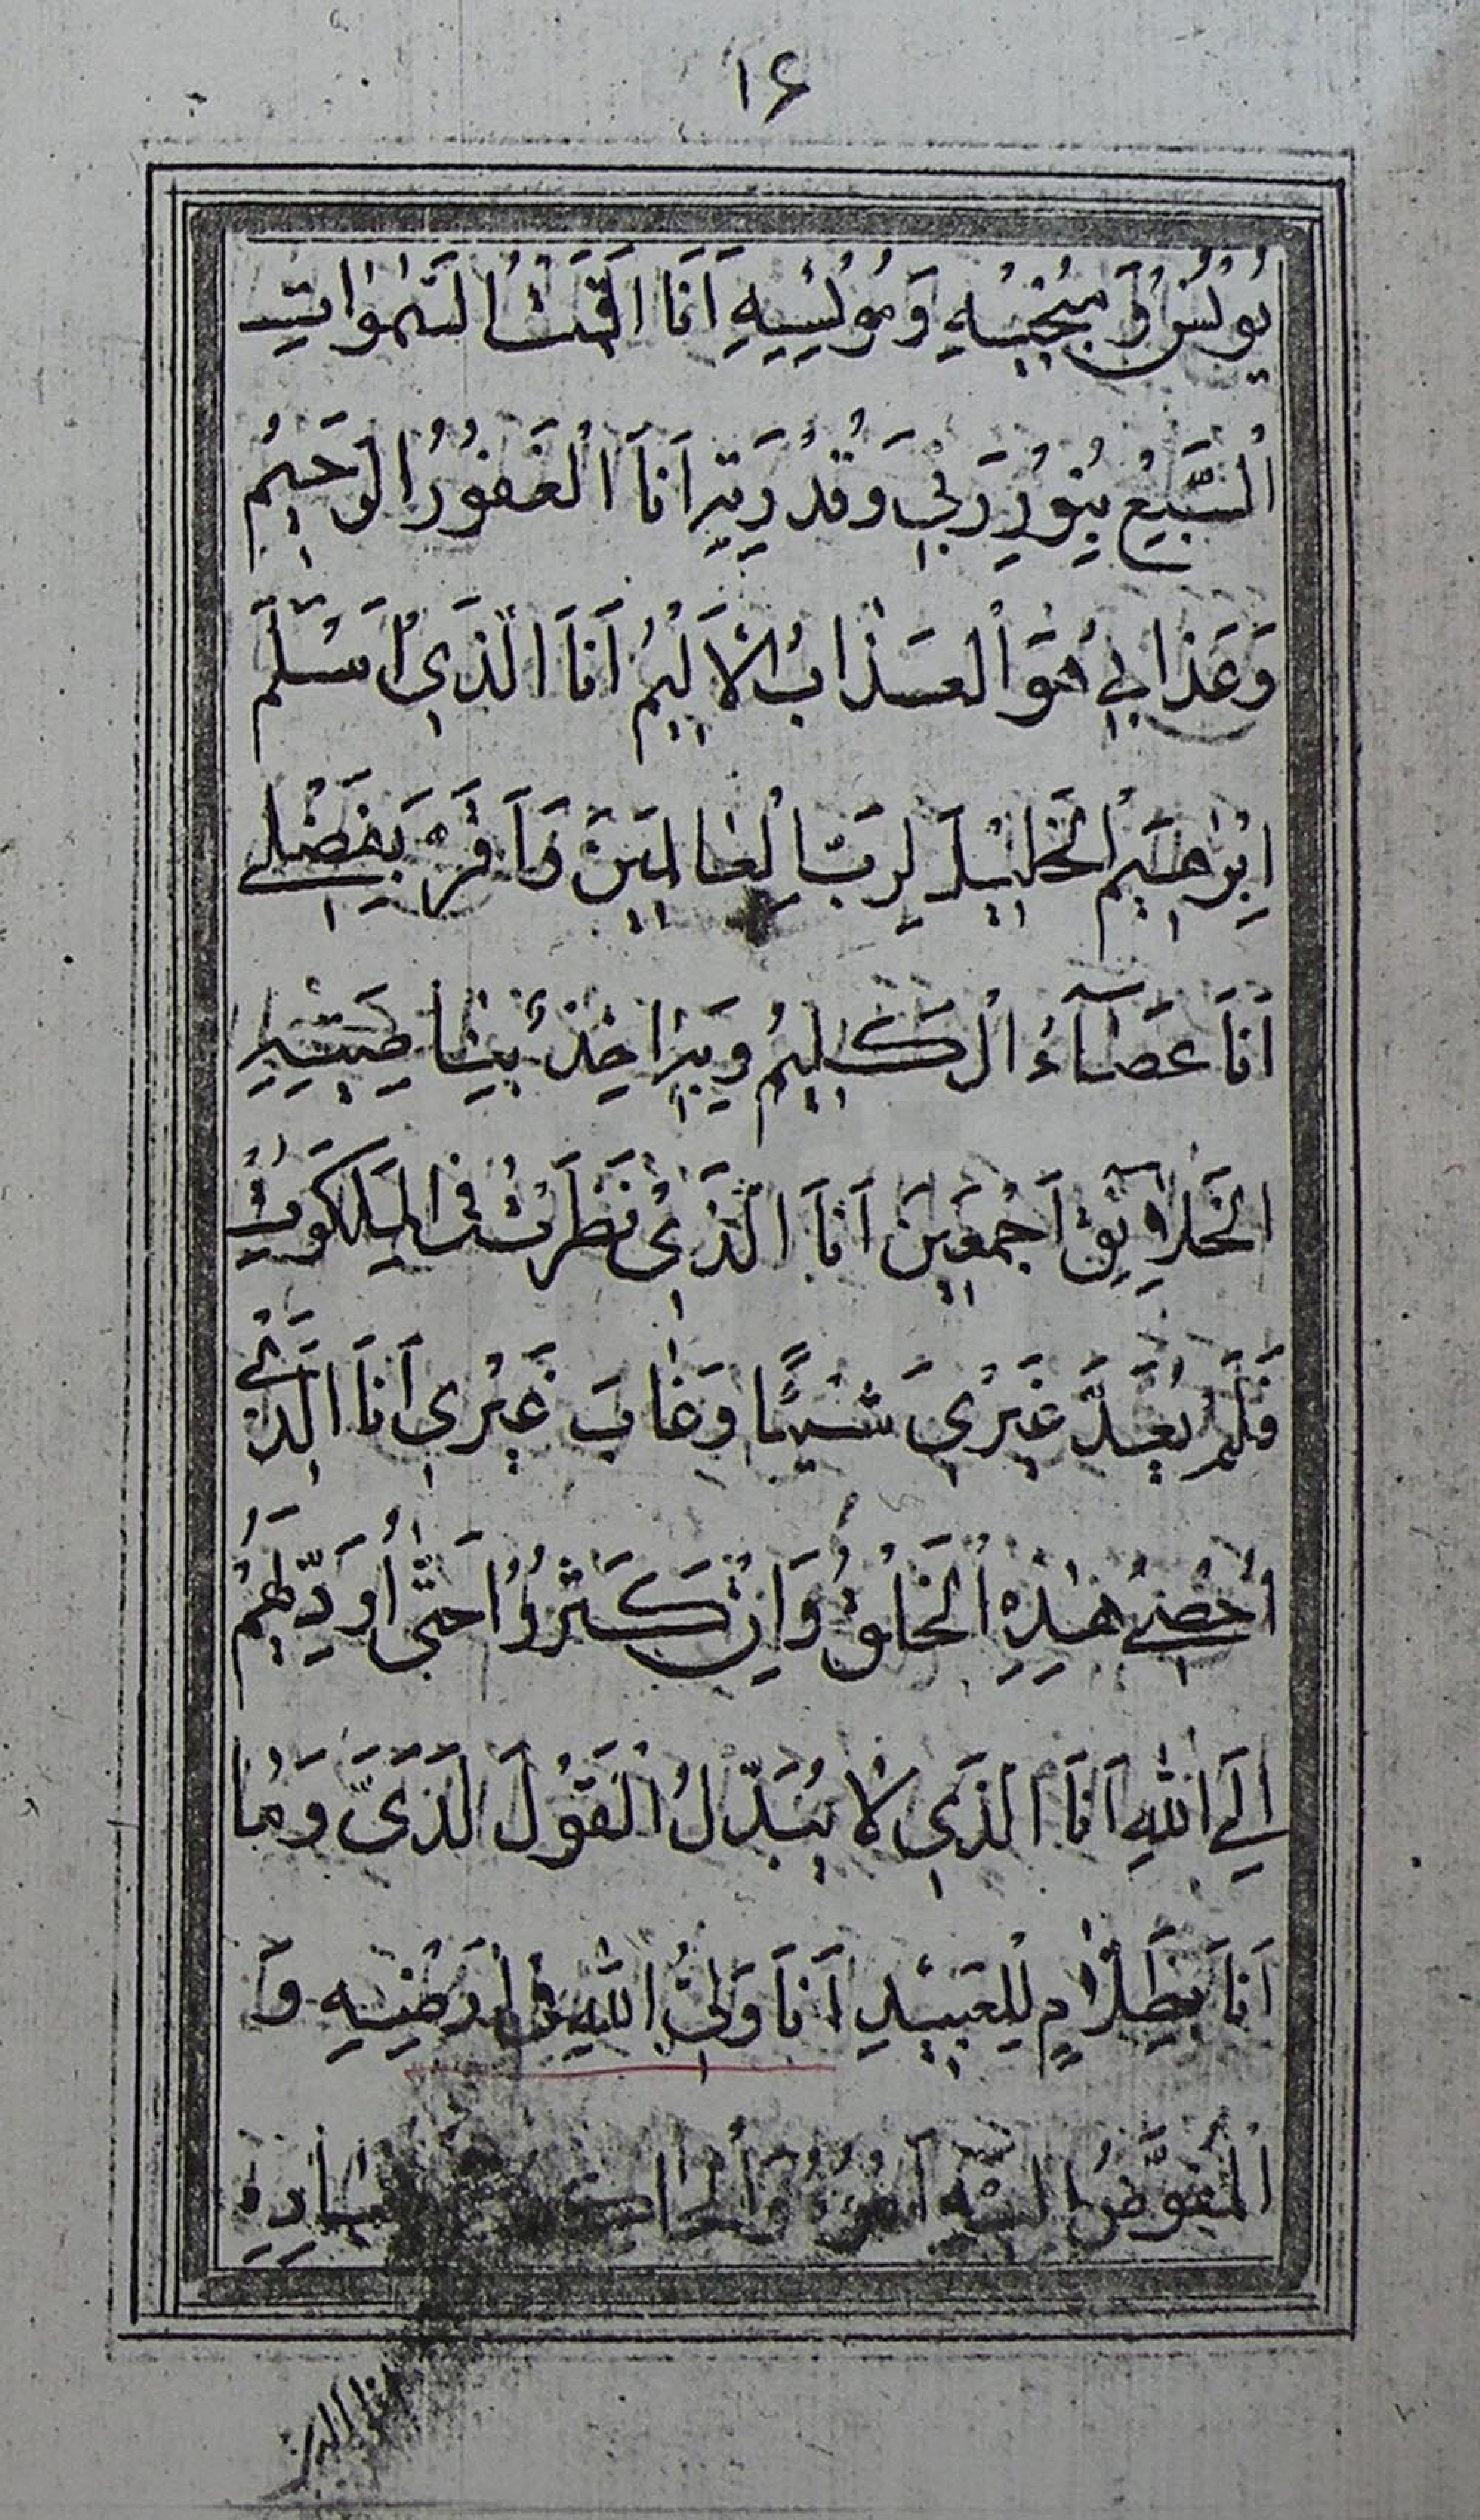 ۱۶
يُونُسُ وَ مُنْجِيْهِ وَ مُونِسِيهِ اَنَا اَقَمْتُ السَّمٰوَاتِ
اْلسَّبْعِ بِنُورِ رَبّي وَ قُدْرَتِهِ اَنَا الْغَفُورُ الرَّحِيمُ
وَ عَذَابي هُوَ الْعَذَابُ الْأَلِيْمُ اَنَا الَّذِي اَسْلَمَ
اِبْرَاهِيمَ الْخَلِيْلَ لِرَبِّ الْعَالَمِينَ وَ اَقَرَّ بِفَضْلِي
اَنَا عَصَاءُ الْكَلِيمُ وَ بِهِ اٰخِذُ بِنَاصِيَةِ
الْخَلَائِقِ اَجْمَعِينَ اَنَا الَّذِي نَظَرْتُ فِي الْمَلَكُوتِ
فَلَمْ يَعُدَّ غَيْرِي شَيْئًا وَ غَابَ غَيْرِي اَنَا الَّذِي
اُحْصِي هٰذِهِ الْخَلْقُ وَ اِنْ كَثُرُوا حَتّٰى اُوَدِّيَهُمْ
اِلَى اللّٰهِ اَنَا الَّذِي لَا يُبَدَّلُ الْقَوْلَ لَدَىَّ وَ مٰا
اَنَا بِظَلَّامٍ لِلْعَبِيدِ اَنَا وَلِيُّ اللّٰهِ فِي اَرْضِهِ وَ
الْمُفَوَّضُ اِلَيْهِ اَمْرُهُ عِبَادِهِ